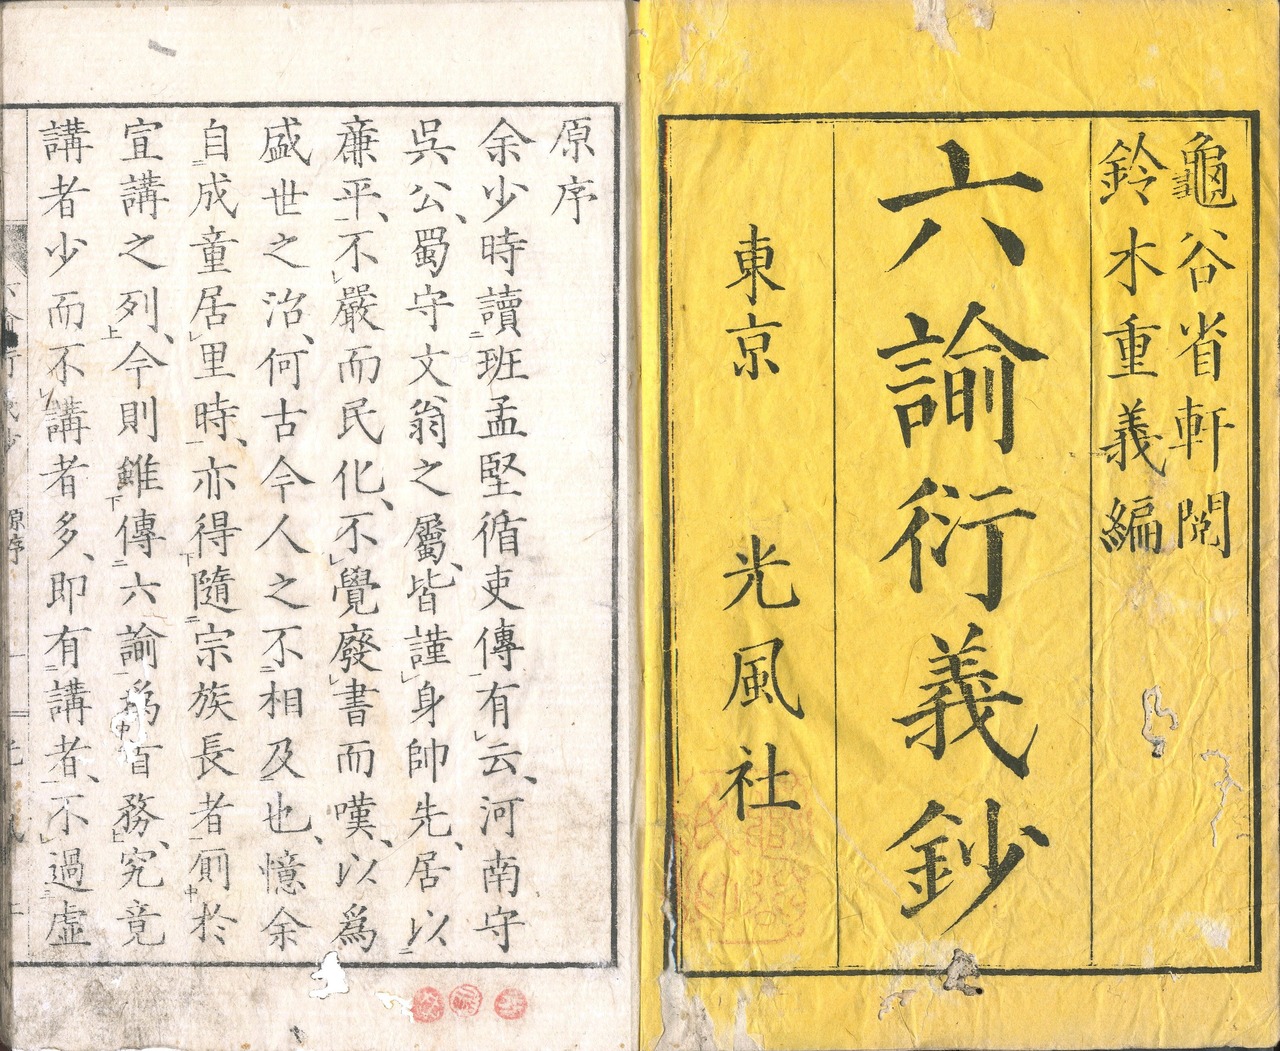 龜谷省軒閲
鈴木重義編
六諭衍義鈔
東京 光風社
原序
余少時讀班孟堅循吏傳有云、河南守
呉公、蜀守文翁之屬、皆謹身帥先、居以
廉平、不嚴而民化、不覺廢書而嘆、以爲
盛世之治、何古今人之不相及也、憶余
自成童居里時、亦得隨宗族長者厠於
宣講之列、今則雖傳六諭爲首務、究竟
講者少而不講者多、即有講者、不過虛
原序